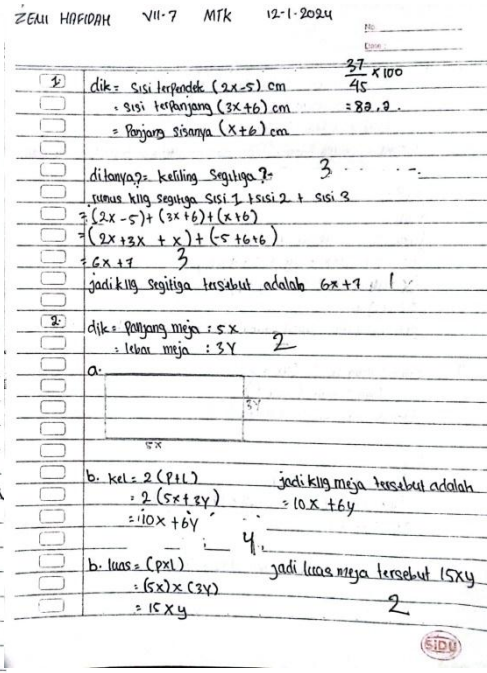 ZENI HAFIDAH VII-7 MTK 12-1-2024
No
Date
37/45 x 100
= 82,2.
1. dik = sisi terpendek (2x-5) cm
= sisi terpanjang (3x+6) cm
= Panjang sisanya (x+6) cm
ditanya?= keliling segitiga?=
3
rumus kllg segitiga sisi 1 + sisi 2 + sisi 3
= (2x-5)+(3x+6)+(x+6)
= (2x+3x + x)+(-5+6+6)
= 6x+7
3
jadi kllg segitiga tersebut adalah 6x+7
1
2. dik = panjang meja : 5x
= lebar meja : 3y
2
a.
3y
5x
b. kel = 2(P+L)
= 2(5x+3y)
= 10x + 6y
jadi kllg meja tersebut adalah
= 10x + 6y
4
b. luas = (pxl)
= (5x) x (3y)
= 15xy
jadi luas meja tersebut 15xy
2
SIDU